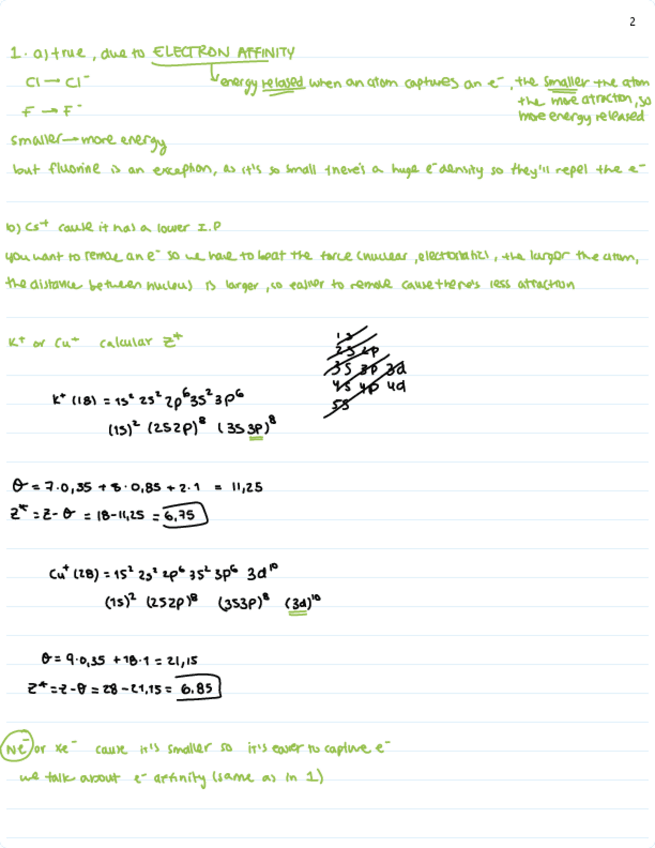 2
1. a) true, due to ELECTRON AFFINITY
Cl → Cl⁻
energy relased when an atom captures an e⁻, the smaller the atom
the more atraction, so
more energy released
F → F⁻
smaller → more energy
but fluorine is an exception, as it's so small there's a huge e⁻ density so they'll repel the e⁻
b) Cs⁺ cause it has a lower I.P
you want to remove an e⁻ so we have to beat the force (nuclear, electostatic), the larger the atom,
the distance between nucleus is larger, so easier to remove cause there's less attraction
K⁺ or Cu⁺ calcular Z*
1s
2s 2p
3s 3p 3d
4s 4p 4d
5s
K⁺ (18) = 1s² 2s² 2p⁶ 3s² 3p⁶
(1s)² (2s2p)⁸ (3s3p)⁸
θ = 7·0,35 + 8·0,85 + 2·1 = 11,25
Z* = Z - θ = 18 - 11,25 = 6,75
Cu⁺ (28) = 1s² 2s² 2p⁶ 3s² 3p⁶ 3d¹⁰
(1s)² (2s2p)⁸ (3s3p)⁸ (3d)¹⁰
θ = 9·0,35 + 18·1 = 21,15
Z* = Z - θ = 28 - 21,15 = 6,85
Ne⁻ or Xe⁻ cause it's smaller so it's easier to captive e⁻
we talk about e⁻ affinity (same as in 1)